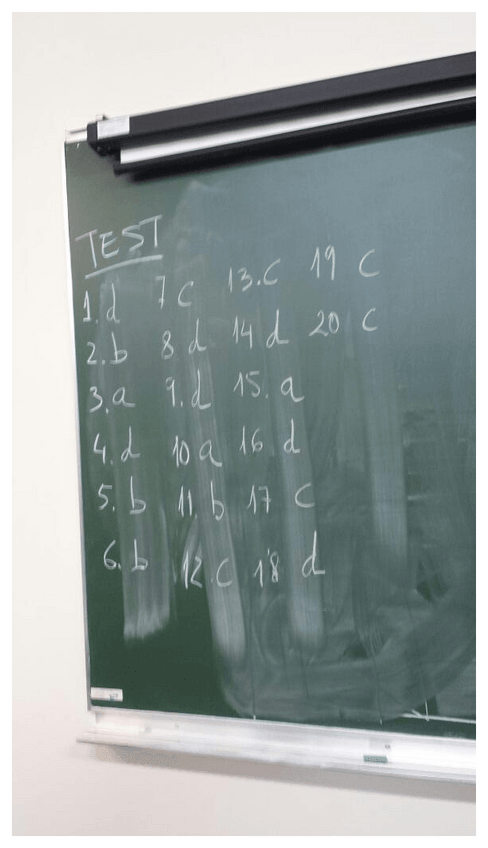 TEST
1. d 7 c 13. c 19 c
2. b 8 d 14 d 20 c
3. a 9. d 15. a
4. d 10 a 16 d
5. b 11. b 17 c
6. b 12. c 18 d